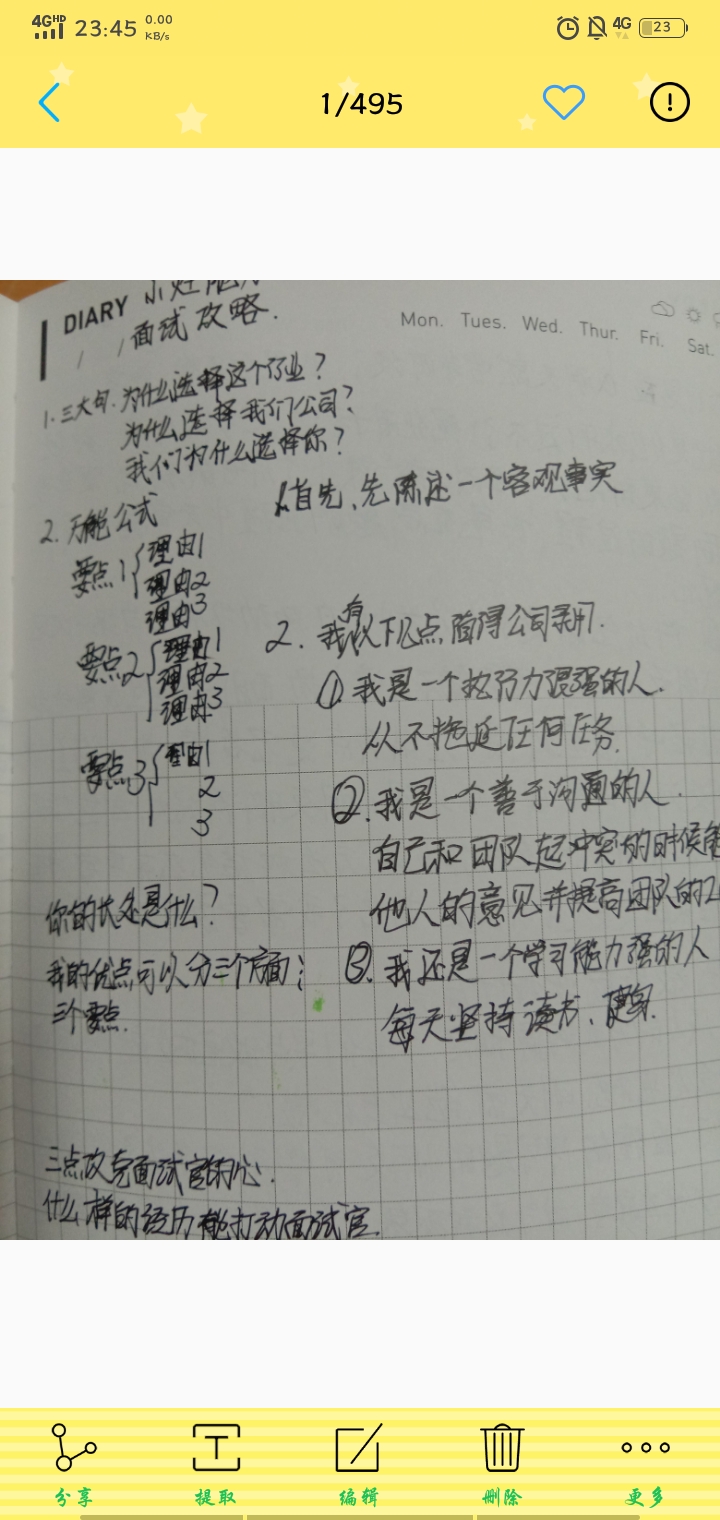 4G HD 23:45 0.00 KB/s 4G 23
1/495
DIARY 小灶
面试攻略.
Mon. Tues. Wed. Thur. Fri. Sat.
1. 三大句. 为什么选择这个行业?
为什么选择我们公司?
我们为什么选择你?
2. 万能公式
要点1 理由1
理由2
理由3
要点2 理由1
理由2
理由3
要点3 理由1
2
3
你的长处是什么?
我的优点可以分三个方面;
三个要点.
三点攻克面试官的心.
什么样的经历能打动面试官.
1.首先、先陈述一个客观事实
2. 我有以下几点,值得公司录用.
①我是一个执行力很强的人.
从不拖延任何任务.
②.我是一个善于沟通的人.
自己和团队起冲突的时候能
他人的意见并提高团队的
③.我还是一个学习能力强的人
每天坚持读书、
分享 提取 编辑 删除 更多